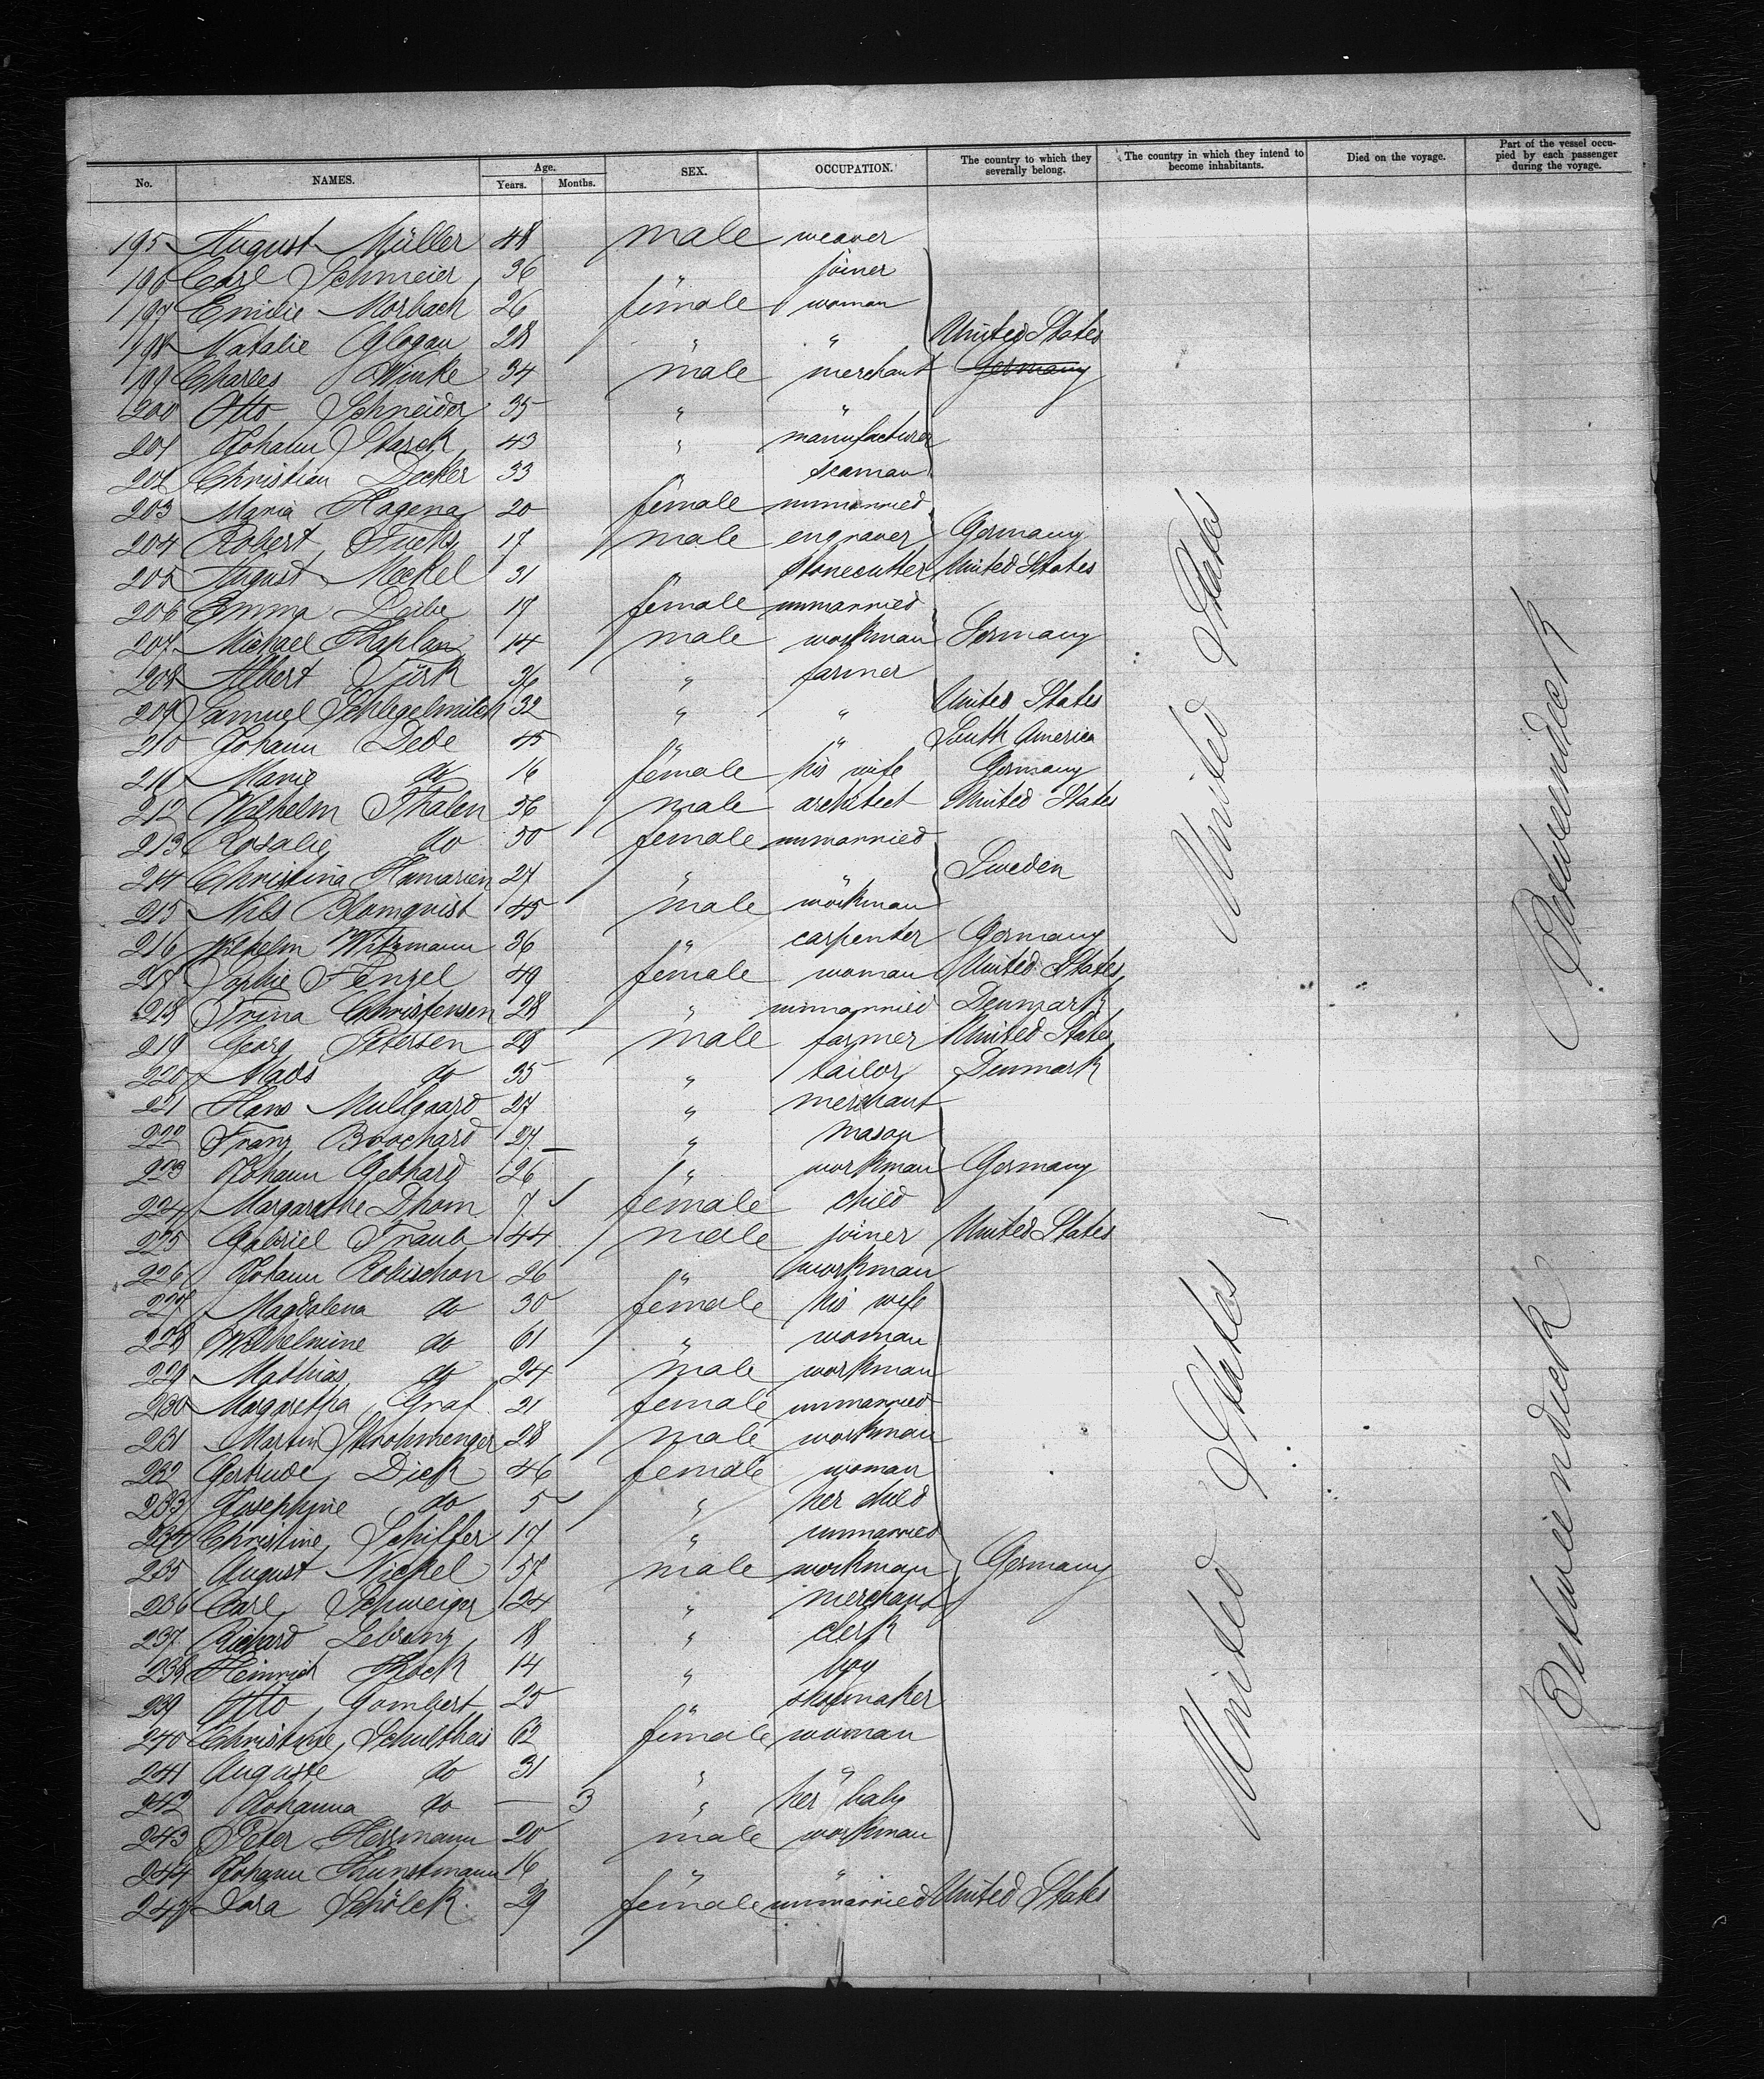 No. NAMES. Age. Years. Months. SEX. OCCUPATION. The country to which they severally belong. The country in which they intend to become inhabitants. Died on the voyage. Part of the vessel occupied by each passenger during the voyage.
195 August Müller 48 male weaver
196 Carl Schmeier 36 " joiner
197 Emilie Morbach 26 female woman
198 Natalie Glogau 28 " " United States
199 Charles Winke 34 male merchant Germany
200 Otto Schneider 35 " "
201 Johann Starck 43 " manufacturer
202 Christian Decker 33 " seaman
203 Maria Hagena 20 female unmarried
204 Robert Fuchs 17 male engraver Germany
205 August Meckel 31 " stonecutter United States
206 Emma 17 female unmarried
207 Michael Kaplan 14 male workman Germany
208 Albert Türk 36 " farmer
209 Samuel Schlegelmilch 32 " " United States
210 Johann Dede 45 " " South America
211 Marie do 16 female his wife Germany
212 Wilhelm Thalen 56 male architect United States
213 Rosalie do 50 female unmarried
214 Christina Hamarien 27 " " Sweden
215 Nils Blomqvist 45 male workman
216 Wilhelm Witzmann 36 " carpenter Germany
217 Sophie Fenzel 49 female woman United States
218 Trina Christensen 28 " unmarried Denmark
219 Georg Petersen 28 male farmer United States
220 Mads do 35 " tailor Denmark
221 Hans Mullgaard 27 " merchant
222 Franz Brochard 27 " mason
223 Johann Gebhard 26 " workman Germany
224 Margarethe Dhom 7 female child
225 Gabriel Traub 44 male joiner United States
226 Johann Robischon 26 " workman
227 Magdalena do 30 female his wife
228 Wilhelmine do 61 " woman
229 Mathias do 24 male workman
230 Margaretha Graf 21 female unmarried
231 Martin Strohmenger 28 male workman
232 Gertrude Dick 46 female woman
233 Josephine do 5 " her child
234 Christine Schiffer 17 " unmarried
235 August Nickel 57 male workman Germany
236 Carl Schweiger 24 " merchant
237 Richard Lebrenz 18 " clerk
238 Heinrich Kock 14 " boy
239 Otto Gombert 25 " shoemaker
240 Christine Schultheis 62 female woman
241 Auguste do 31 " "
242 Johanna do — 3 " her baby
243 Peter Herrmann 20 male workman
244 Johann Kunstmann 16 " "
245 Dora Schölek 29 female unmarried United States
United States
United States
Betweendeck
Betweendeck